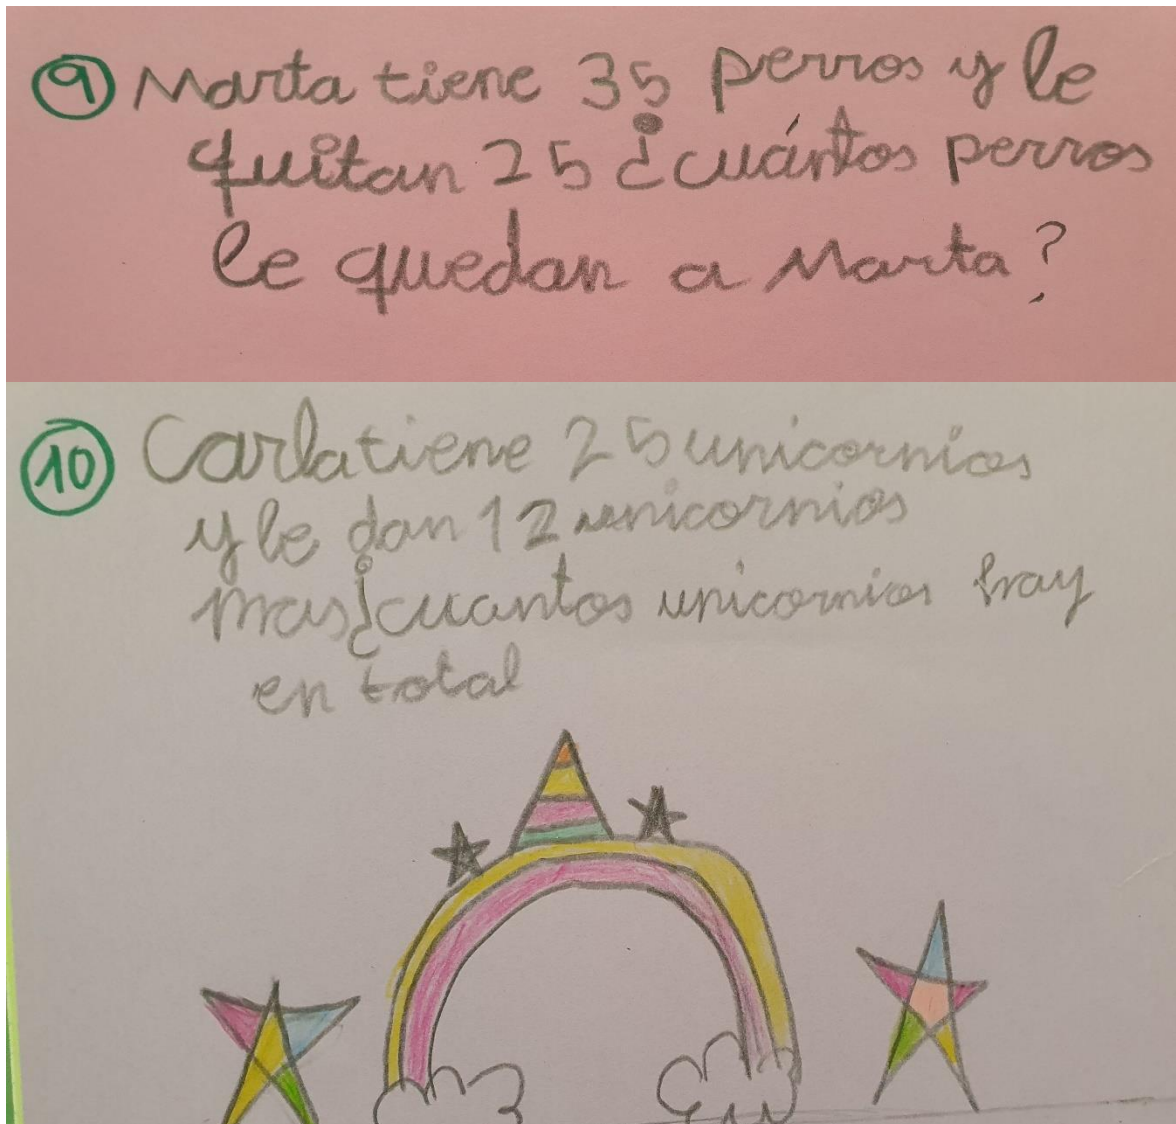 9 Marta tiene 35 perros y le
quitan 25 ¿cuántos perros
le quedan a Marta?
10 Carla tiene 25 unicornios
y le dan 12 unicornios
mas ¿cuantos unicornios hay
en total